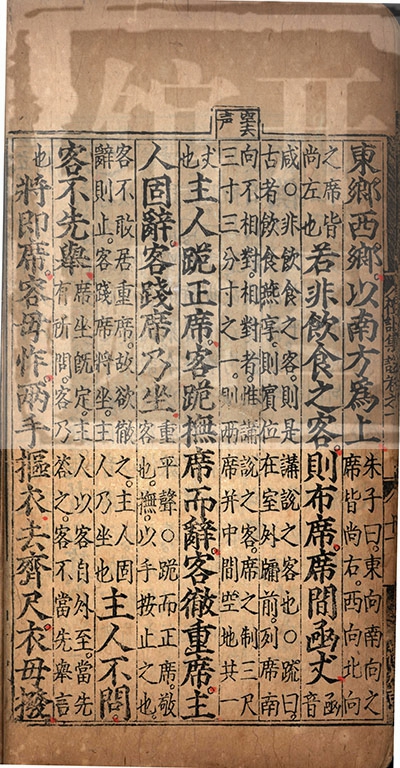 東鄉西鄉以南方爲上
朱子曰東向南向之
席皆尚右西向北向
之席皆
尚左也
若非飲食之客則布席席間函丈
函音
咸○非飲食之客則是講說之客也○䟽曰
古者飲食燕享則賓位在室外牖前列席南
向不相對相對者惟講說之客席之制三尺
三寸三分寸之一則兩席并中間空地共一
丈
也
主人跪正席客跪撫席而辭客徹重席主
人固辭客踐席乃坐
重平聲○跪而正席敬
客也撫以手按止之也
客不敢居重席故欲徹之主人固
辭則止客踐席將坐主人乃坐也
主人不問
客不先舉
席坐旣定主人以客自外至當先
有所問客乃答之客不當先舉言
也
將即席容毋怍兩手摳衣去齊尺衣毋撥